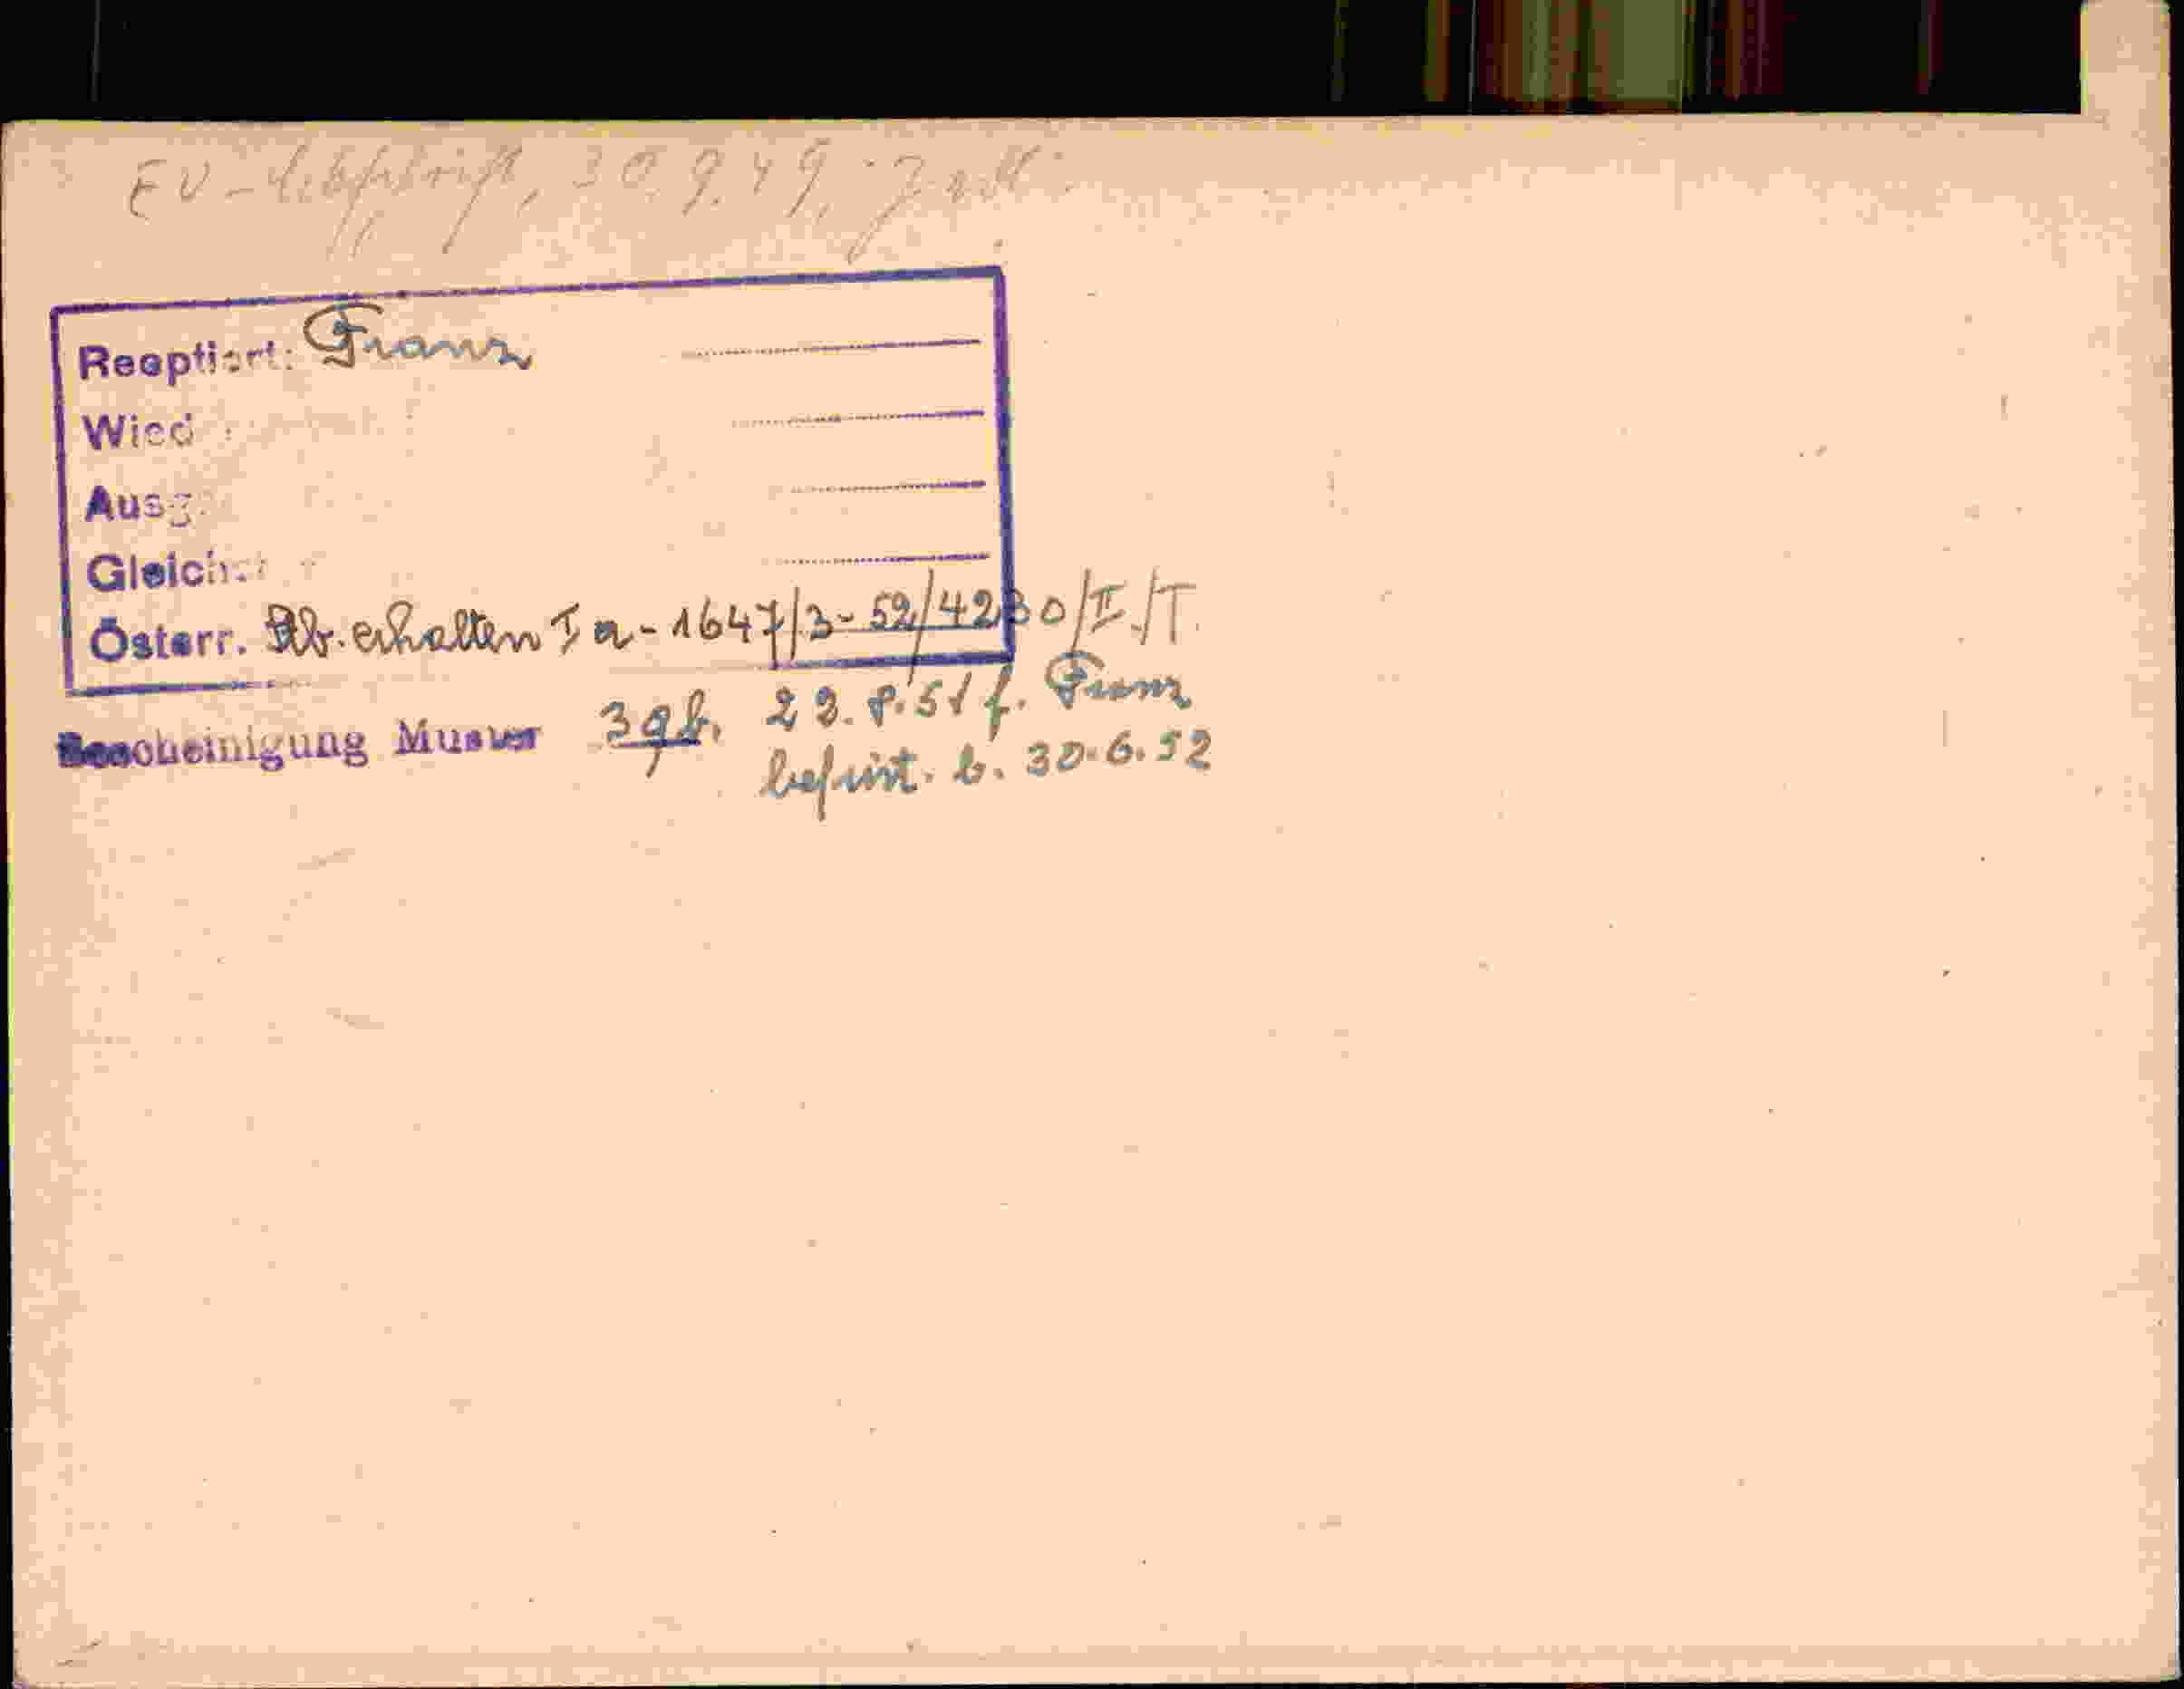 EV-Abschrift, 30.9.49,
Reoptiert: Franz
Wied :
Ausg.
Gleich
Österr. Stb. erhalten I a - 1647/3-52/4230/II./T.
Bescheinigung Muster 3 gb. 22.8.51 f. Franz
befrist. b. 30.6.52